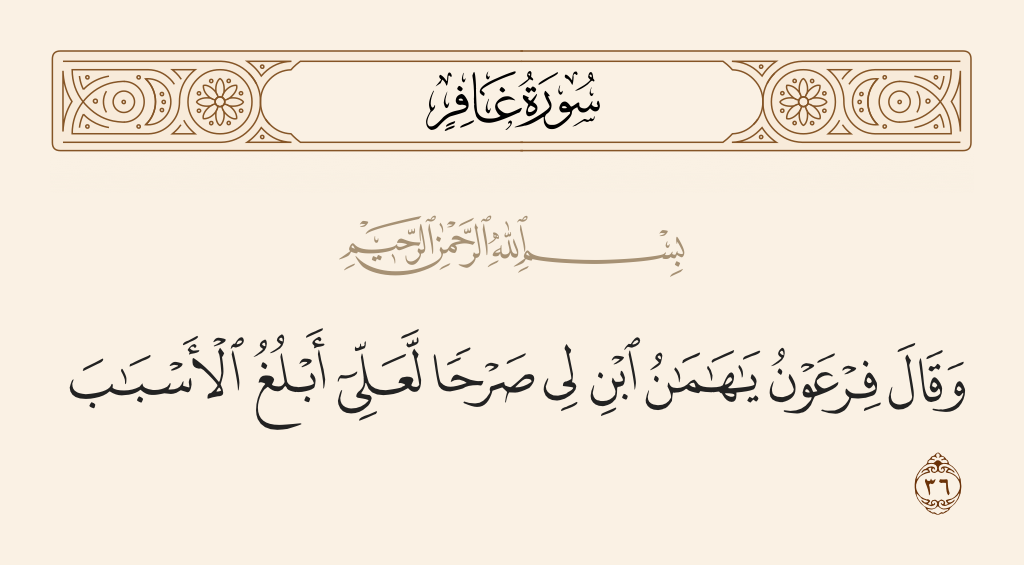 سُورَةُ غَافِرٍ
بِسْمِ ٱللَّهِ ٱلرَّحْمَٰنِ ٱلرَّحِيمِ
وَقَالَ فِرْعَوْنُ يَٰهَٰمَٰنُ ٱبْنِ لِى صَرْحًا لَّعَلِّىٓ أَبْلُغُ ٱلْأَسْبَٰبَ
٣٦